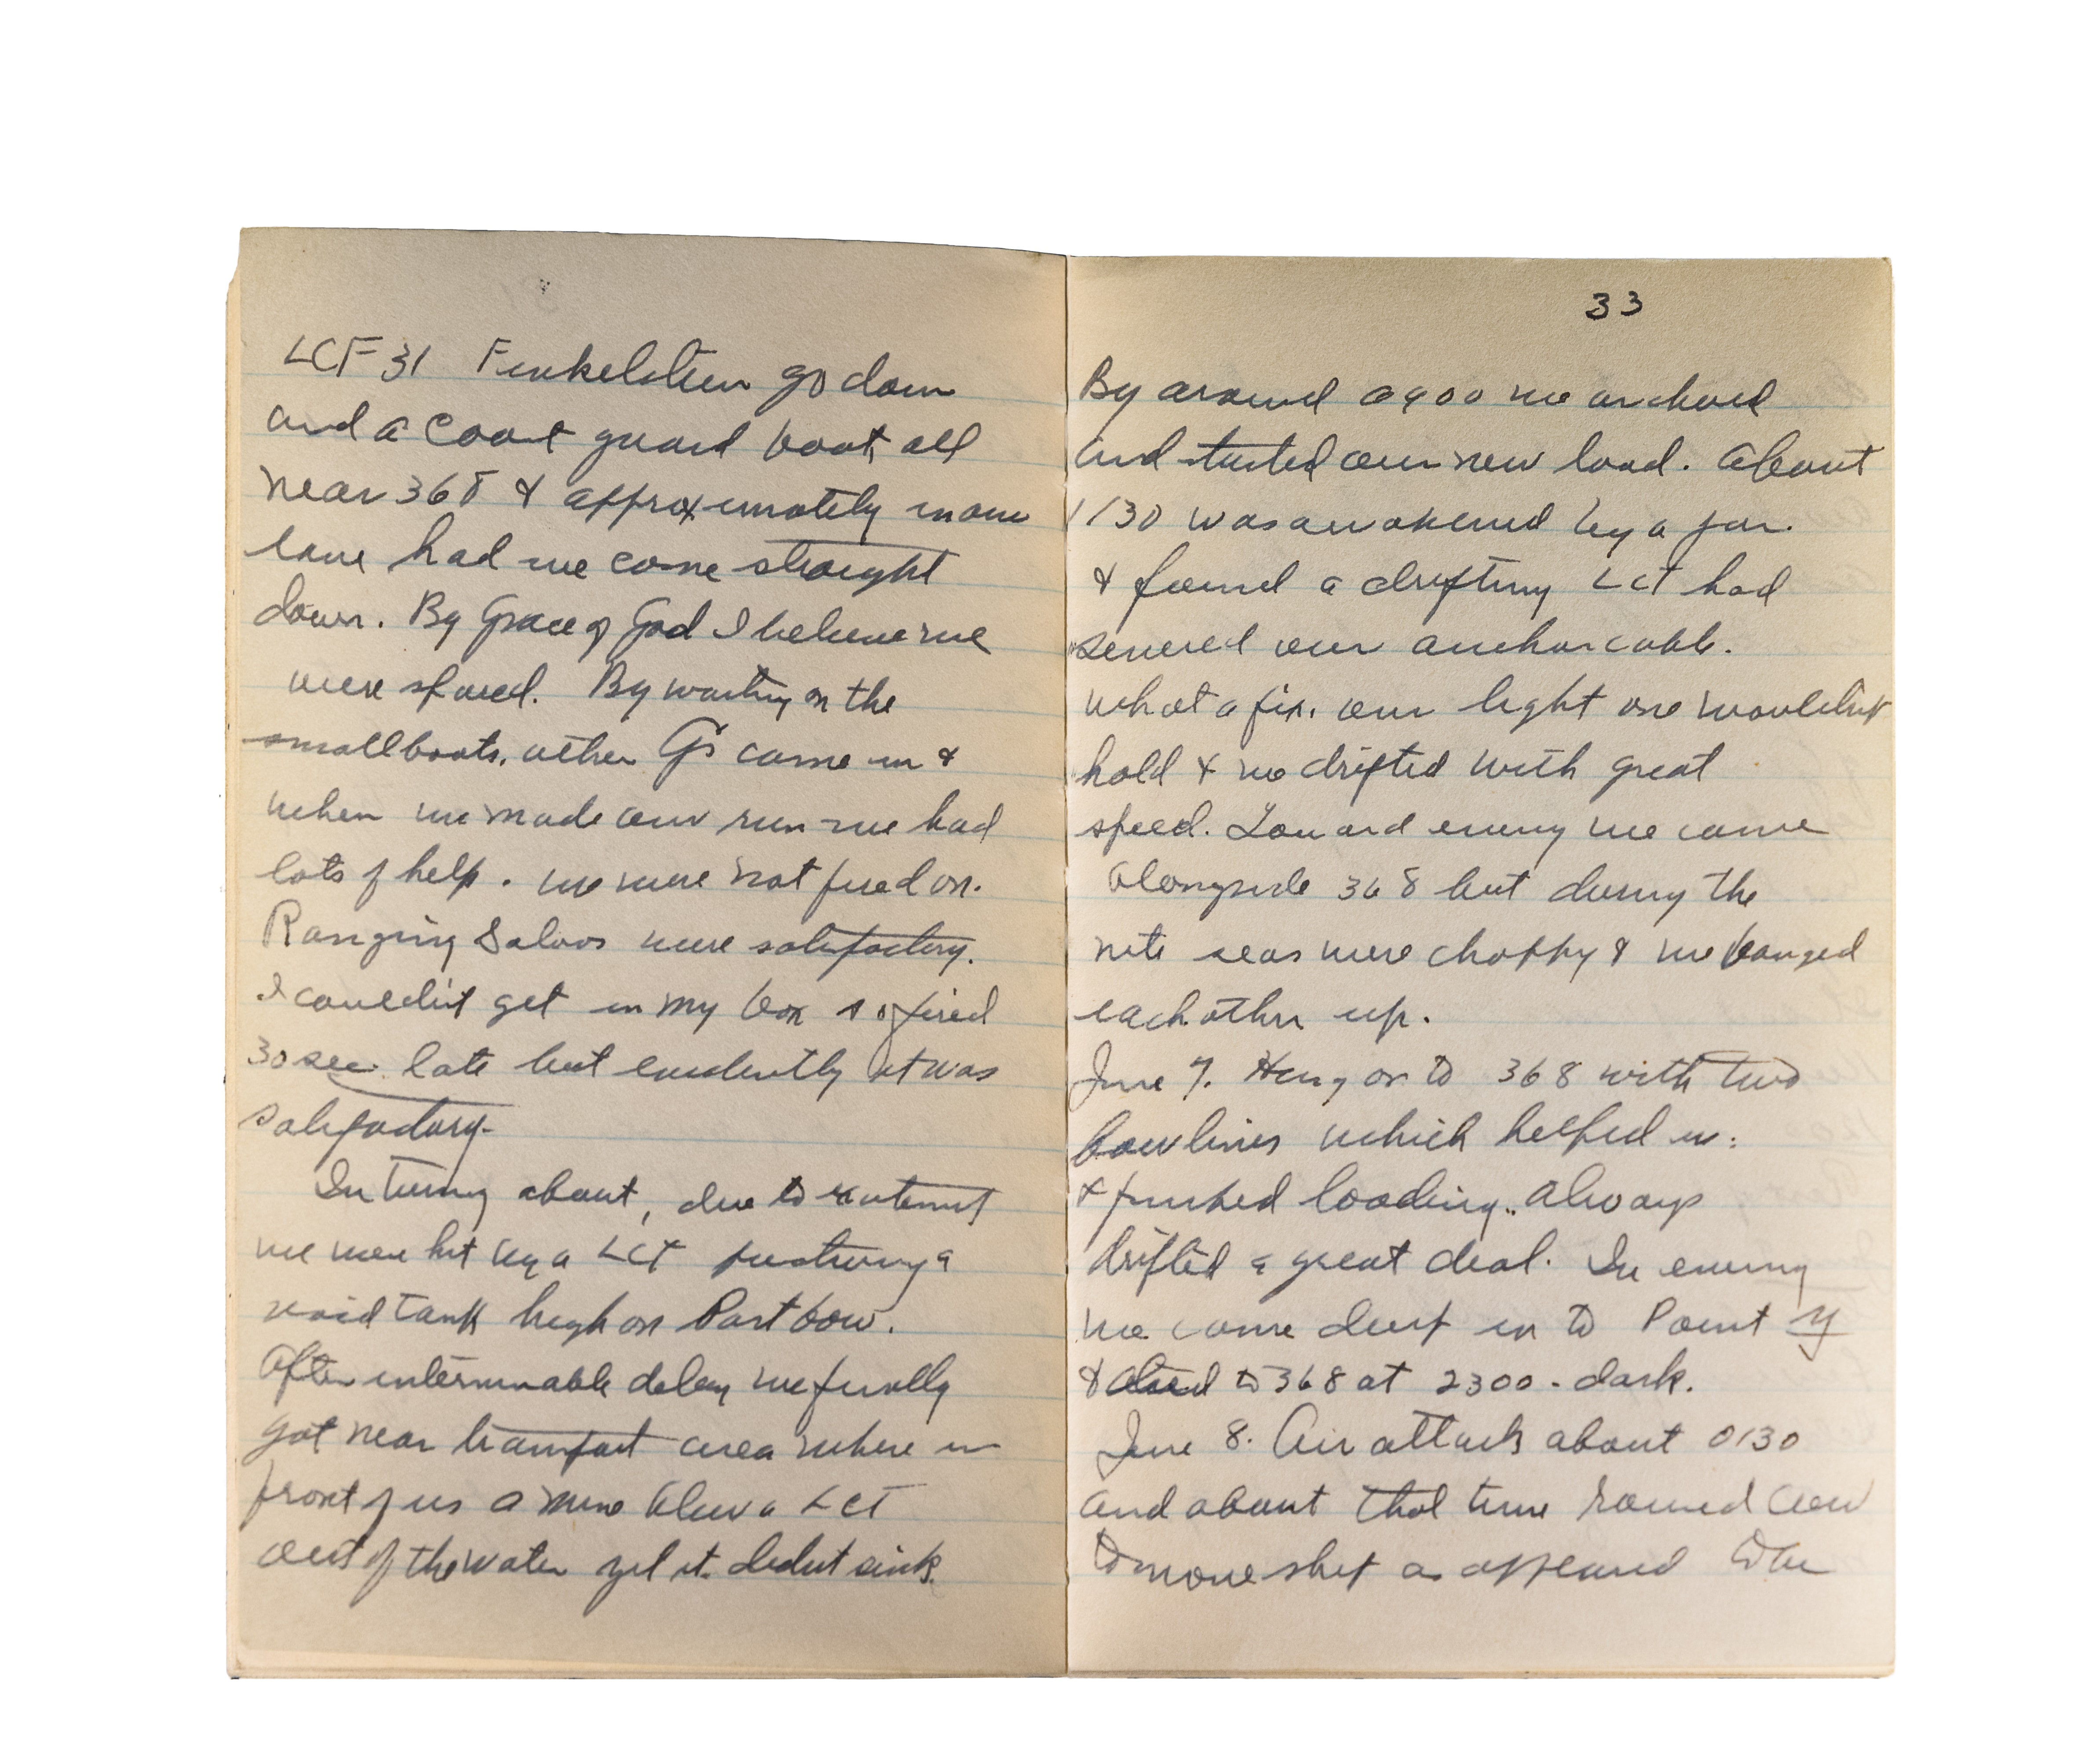 LCF 31 Finkelstein go down
and a Coast guard boat, all
near 368 & approximately in our
lane had we come straight
down. By Grace of God I believe we
were spared. By waiting on the
small boats, other G's came in &
when we made our run we had
lots of help. we were not fired on.
Ranging Salvos were satisfactory.
I couldn't get in my box so fired
30 sec late but evidently it was
satisfactory.
In turning about, due to
we were hit by a LCT puncturing a
void tank high on Port bow.
After interminable delay we finally
got near transport area where in
front of us a mine blew a LCT
out of the water yet it didn't sink.
33
By around 0900 we anchored
and started our new load. About
1130 was awakened by a jar.
& found a drifting LCT had
severed our anchor cable.
What a fix. our light one wouldn't
hold & we drifted with great
speed. Toward evening we came
alongside 368 but during the
nite seas were choppy & we banged
each other up.
June 7. Hung on to 368 with two
bow lines which helped us.
& finished loading.. Always
drifted a great deal. In evening
we came deep in to Point Y
& to 368 at 2300 - dark.
June 8. Air attack about 0130
and about that time roused crew
to move ship as appeared to be